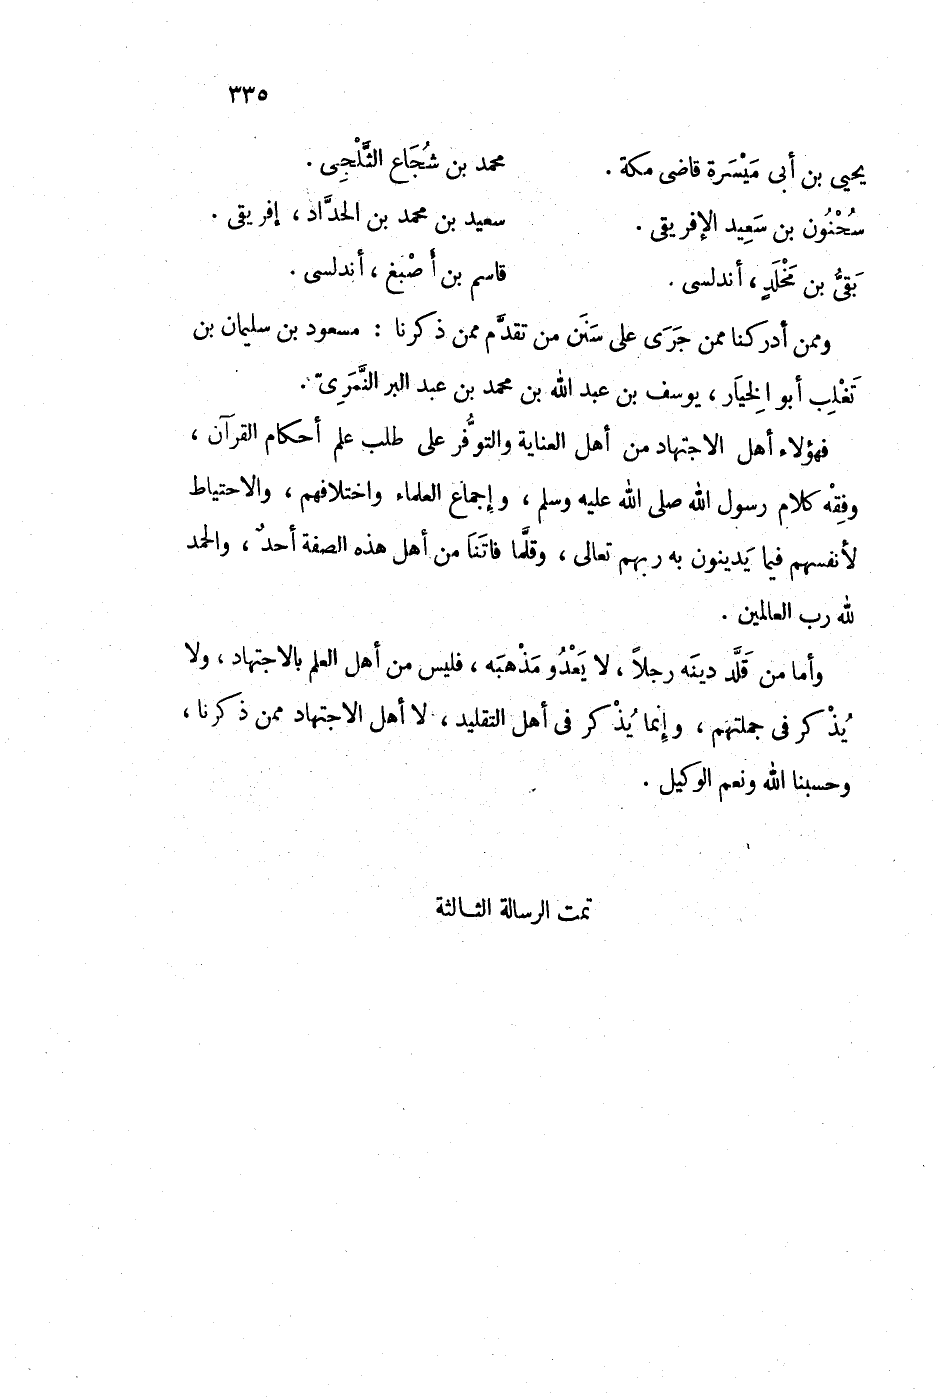 ٣٣٥
يحيى بن أبى مَيْسَرة قاضى مكة . محمد بن شُجَاع الثَّلْجِى .
سُحْنُون بن سَعِيد الإفريقى . سعيد بن محمد بن الحدَّاد ، إفريقى .
بَقِىُّ بن مَخْلَدٍ ، أندلسى . قاسم بن أَصْبَغ ، أندلسى .
وممن أدركنا ممن جَرَى على سَنَن من تقدَّم ممن ذكرنا : مسعود بن سليمان بن
تَغْلِب أبو الخِيَار ، يوسف بن عبد الله بن محمد بن عبد البر النَّمَرِىّ .
فهؤلاء أهل الاجتهاد من أهل العناية والتوفُّر على طلب علم أحكام القرآن ،
وفِقْه كلام رسول الله صلى الله عليه وسلم ، وإجماع العلماء واختلافهم ، والاحتياط
لأنفسهم فيما يَدينون به ربهم تعالى ، وقلَّما فاتَنَا من أهل هذه الصفة أحدٌ ، والحمد
لله رب العالمين .
وأما من قَلَّد دينَه رجلاً ، لا يَعْدُو مَذْهبَه ، فليس من أهل العلم بالاجتهاد ، ولا
يُذْكر فى جملتهم ، وإنما يُذْكر فى أهل التقليد ، لا أهل الاجتهاد ممن ذكرنا ،
وحسبنا الله ونعم الوكيل .
تمت الرسالة الثالثة